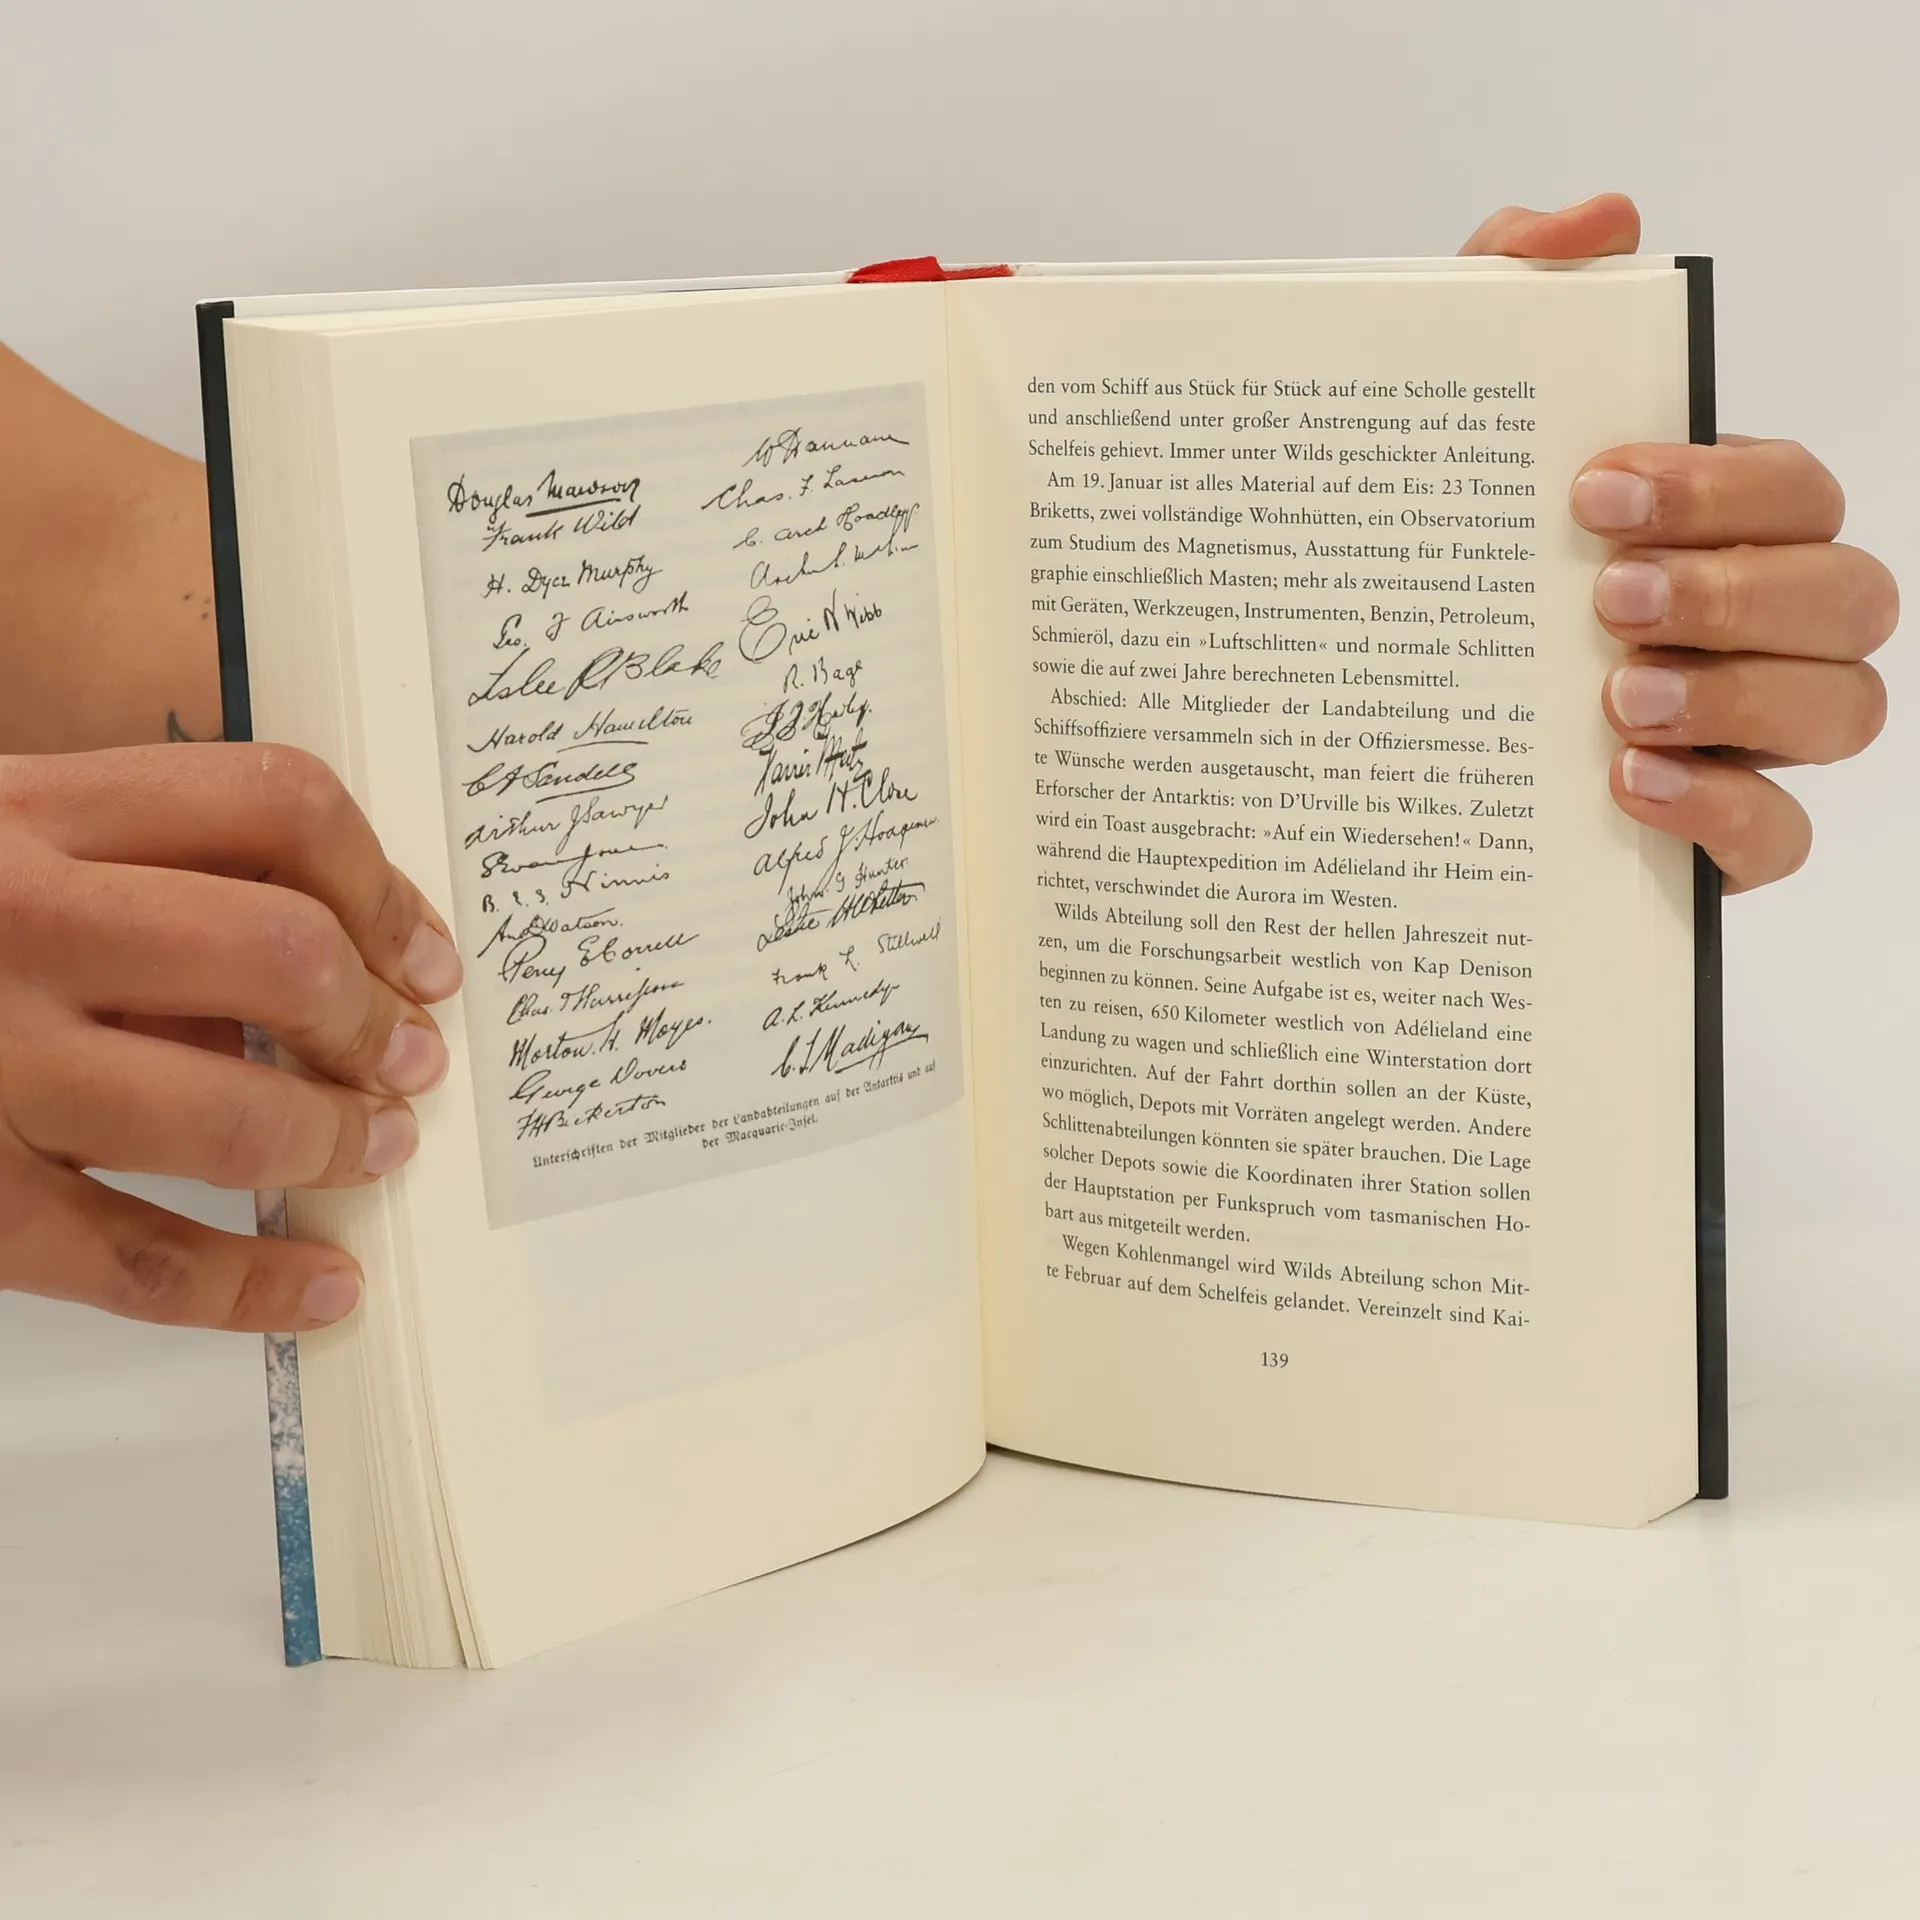 Douglas Mawson
Frank Wild
H. Dyce Murphy
Geo. F Ainsworth
Leslie R Blake
Harold Hamilton
C A Sandell
Arthur J Sawyer
S Evan Jones
B. E. S. Ninnis
And Watson.
Percy E Correll
Chas. T Harrisson
Morton. H. Moyes.
George Dovers
F H Bickerton
W Hannam
Chas. F. Laseron
C. Arch Hoadley
Eric N Webb
R. Bage
John H. Close
Alfred J. Hodgeman.
John. G Hunter.
Leslie H Whetter.
Frank L. Stillwell
A. L. Kennedy
C. T. Madigan
Unterschriften der Mitglieder der Landabteilungen auf der Antarktis und auf
der Macquarie-Insel.
den vom Schiff aus Stück für Stück auf eine Scholle gestellt
und anschließend unter großer Anstrengung auf das feste
Schelfeis gehievt. Immer unter Wilds geschickter Anleitung.
Am 19. Januar ist alles Material auf dem Eis: 23 Tonnen
Briketts, zwei vollständige Wohnhütten, ein Observatorium
zum Studium des Magnetismus, Ausstattung für Funktele-
graphie einschließlich Masten; mehr als zweitausend Lasten
mit Geräten, Werkzeugen, Instrumenten, Benzin, Petroleum,
Schmieröl, dazu ein »Luftschlitten« und normale Schlitten
sowie die auf zwei Jahre berechneten Lebensmittel.
Abschied: Alle Mitglieder der Landabteilung und die
Schiffsoffiziere versammeln sich in der Offiziersmesse. Bes-
te Wünsche werden ausgetauscht, man feiert die früheren
Erforscher der Antarktis: von D'Urville bis Wilkes. Zuletzt
wird ein Toast ausgebracht: »Auf ein Wiedersehen!« Dann,
während die Hauptexpedition im Adélieland ihr Heim ein-
richtet, verschwindet die Aurora im Westen.
Wilds Abteilung soll den Rest der hellen Jahreszeit nut-
zen, um die Forschungsarbeit westlich von Kap Denison
beginnen zu können. Seine Aufgabe ist es, weiter nach Wes-
ten zu reisen, 650 Kilometer westlich von Adélieland eine
Landung zu wagen und schließlich eine Winterstation dort
einzurichten. Auf der Fahrt dorthin sollen an der Küste,
wo möglich, Depots mit Vorräten angelegt werden. Andere
Schlittenabteilungen könnten sie später brauchen. Die Lage
solcher Depots sowie die Koordinaten ihrer Station sollen
der Hauptstation per Funkspruch vom tasmanischen Ho-
bart aus mitgeteilt werden.
Wegen Kohlenmangel wird Wilds Abteilung schon Mit-
te Februar auf dem Schelfeis gelandet. Vereinzelt sind Kai-
139